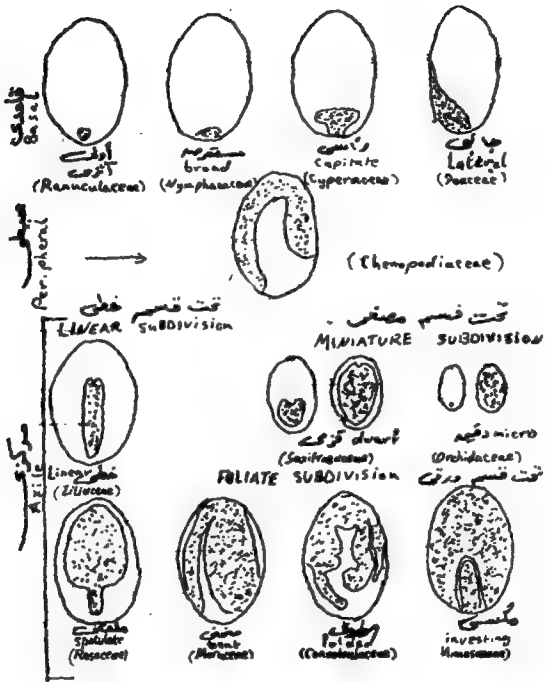 قاعدي
Basal
أولي
أثري
(Ranunculaceae)
broad
(Nymphaeaceae)
رأسي
Capitate
(Cyperaceae)
جانبي
Lateral
(Poaceae)
محيطي
Peripheral
(Chenopodiaceae)
تحت قسم خطي
LINEAR SUBDIVISION
تحت قسم مصغر
MINIATURE SUBDIVISION
مركزي
Axile
Linear خطي
(Liliaceae)
قزمي dwarf
(Saxifragaceae)
micro
(Orchidaceae)
FOLIATE SUBDIVISION تحت قسم ورقي
ملعقي
Spatulate
(Rosaceae)
منحني
bent
investing